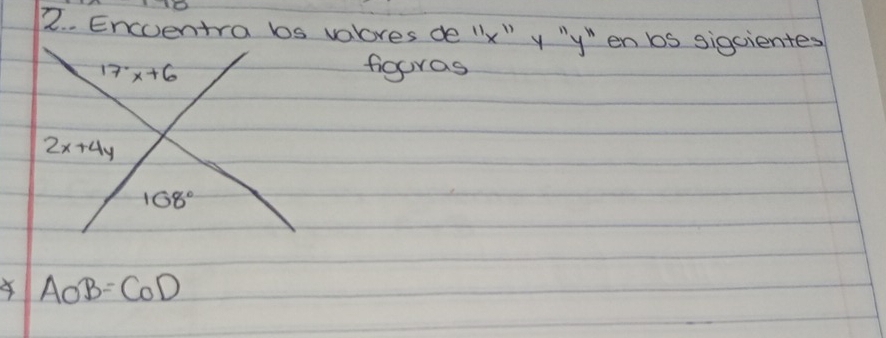 2.. Encuentra los valores de "x" y "y" en los siguientes
figuras
17x+6
2x+4y
108°
* AOB=COD